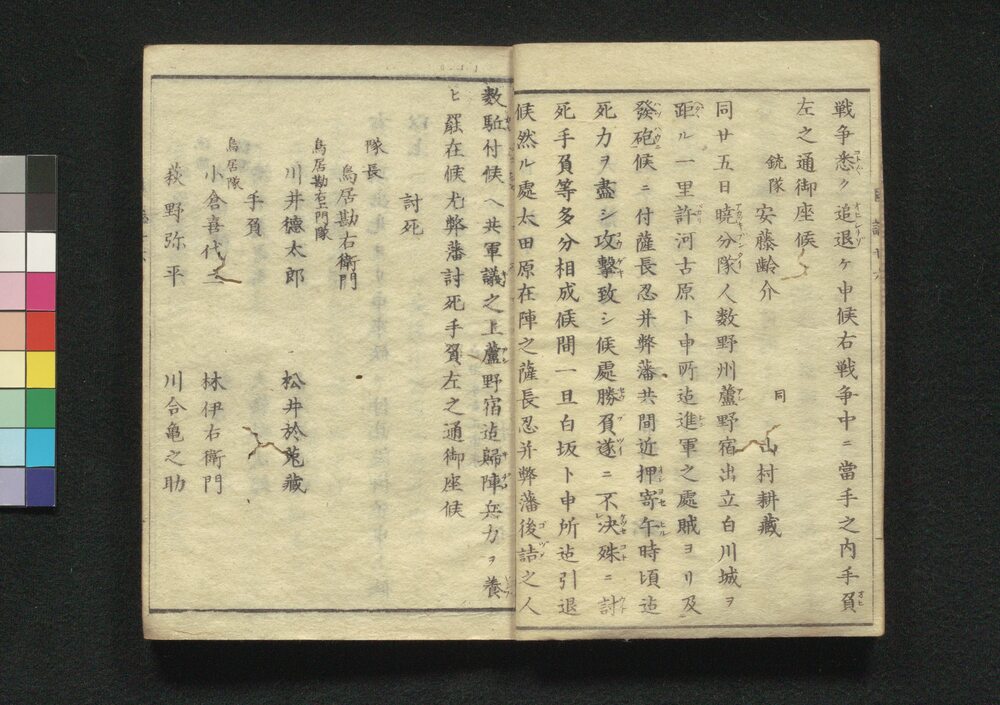 戦争悉ク追退ケ申候右戦争中ニ當手之内手負
左之通御座候
銃隊 安藤齢介 同 山村耕藏
同廿五日曉分隊人数野州蘆野宿出立白川城ヲ
距ル一里許河古原ト申所迠進軍之處賊ヨリ及
發砲候ニ付薩長忍并弊藩共間近押寄午時頃迠
死力ヲ盡シ攻擊致シ候處勝負遂ニ不決殊ニ討
死手負等多分相成候間一旦白坂ト申所迠引退
候然ル處太田原在陣之薩長忍并弊藩後詰之人
数駈付候ヘ共軍議之上蘆野宿迠歸陣兵力ヲ養
ヒ罷在候尤弊藩討死手負左之通御座候
討死
隊長
鳥居勘右衛門
鳥居勘右衛門隊
川井德太郎 松井於菟藏
手負
鳥居隊
小倉喜代二 林伊右衛門
萩野弥平 川合亀之助